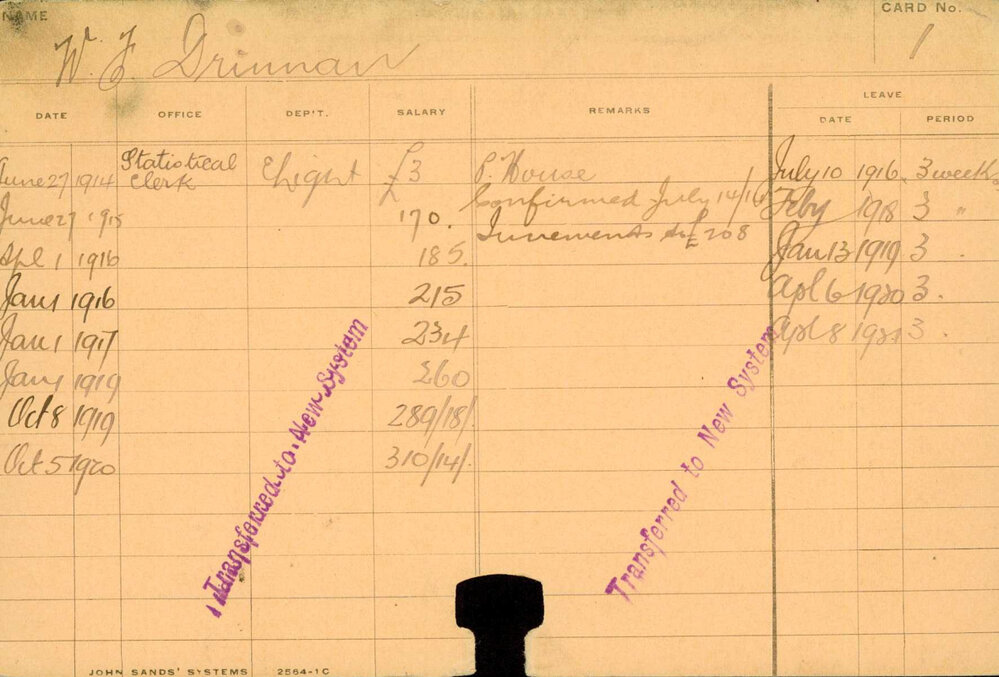 NAME
CARD No.
W. F. Drinnan
1
LEAVE
DATE OFFICE DEP'T. SALARY REMARKS DATE PERIOD
June 27 1914 Statistical Clerk Elight £3 P. House July 10 1916 3 weeks
Confirmed July 14/16
June 27 1915 170. Increments to £208 Feby 1918 3 "
Apl 1 1916 185. Jan 13 1919 3 .
Jany 1916 215 Apl 6 1920 3.
Jan 1 1917 234 Apl 8 1921 3.
Jany 1919 260
Oct 8 1919 289/18/.
Oct 5 1920 310/14/.
Transferred to New System
Transferred to New System
JOHN SANDS' SYSTEMS 2564-1C